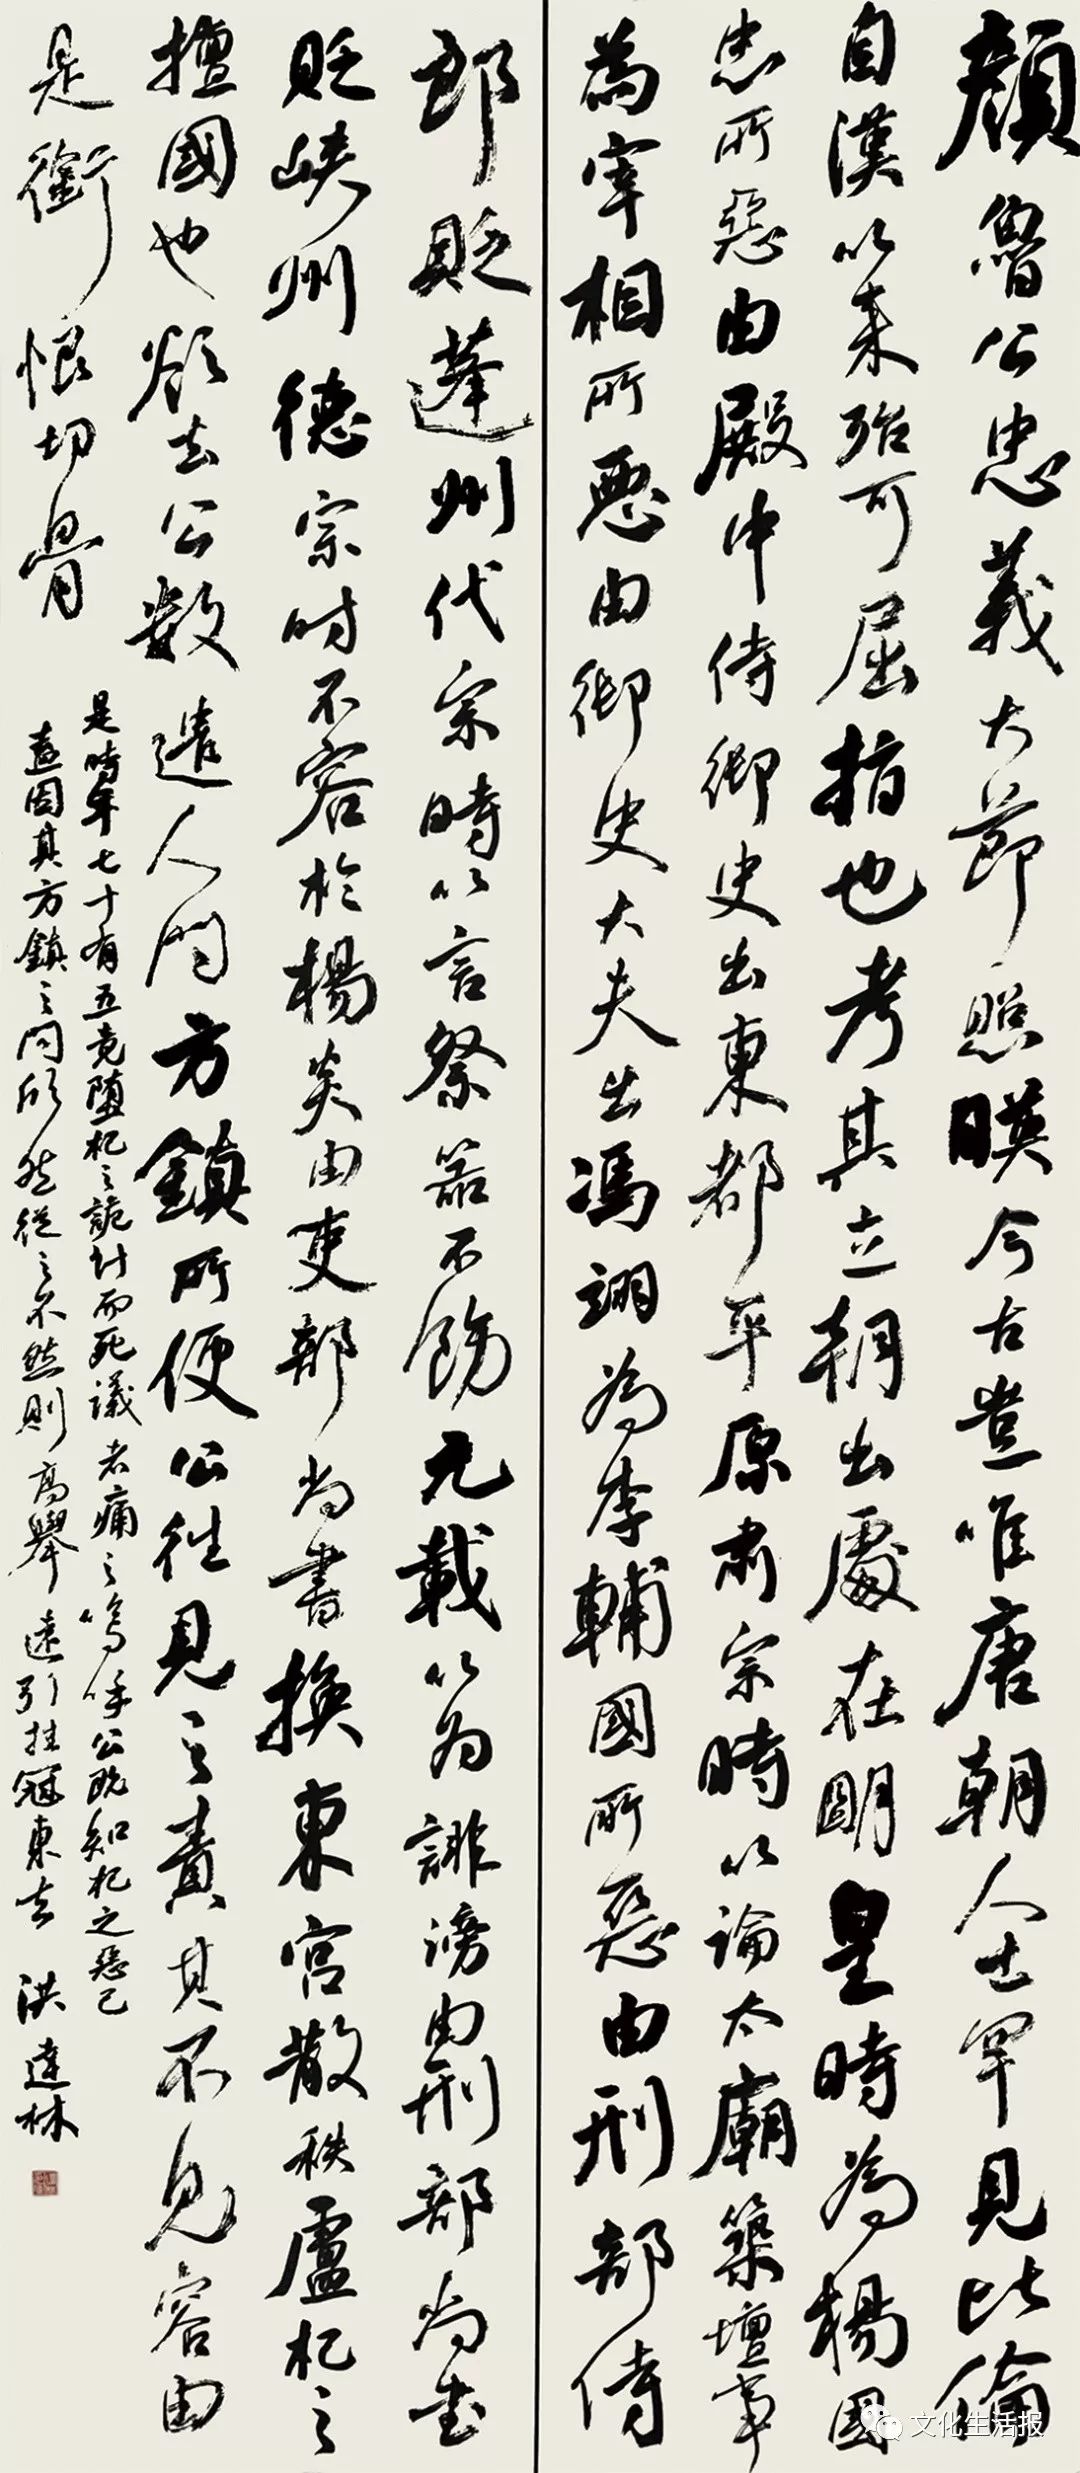 顏魯公忠義大節照暎今古豈唯唐朝人士罕見比倫
自漢以来殆可屈指也考其立朝出處在明皇時為楊國
忠所惡由殿中侍御史出東都平原肅宗時以論太廟築壇事
為宰相所惡由御史大夫出馮翊為李輔國所惡由刑部侍
郎貶蓬州代宗時以言祭器不飭元載以为誹謗由刑部尚書
貶峽州德宗时不容於楊炎由吏部尚書換東宮散秩盧杞之
擅國也欲去公數遣人問方鎮所便公往見之責其不見容由
是銜恨切骨
是時年七十有五竟堕杞之詭計而死議者痛之嗚呼公既知杞之惡己
盍因其方鎮之问欣然從之不然則高舉遠引挂冠東去
洪達林
文化生活报